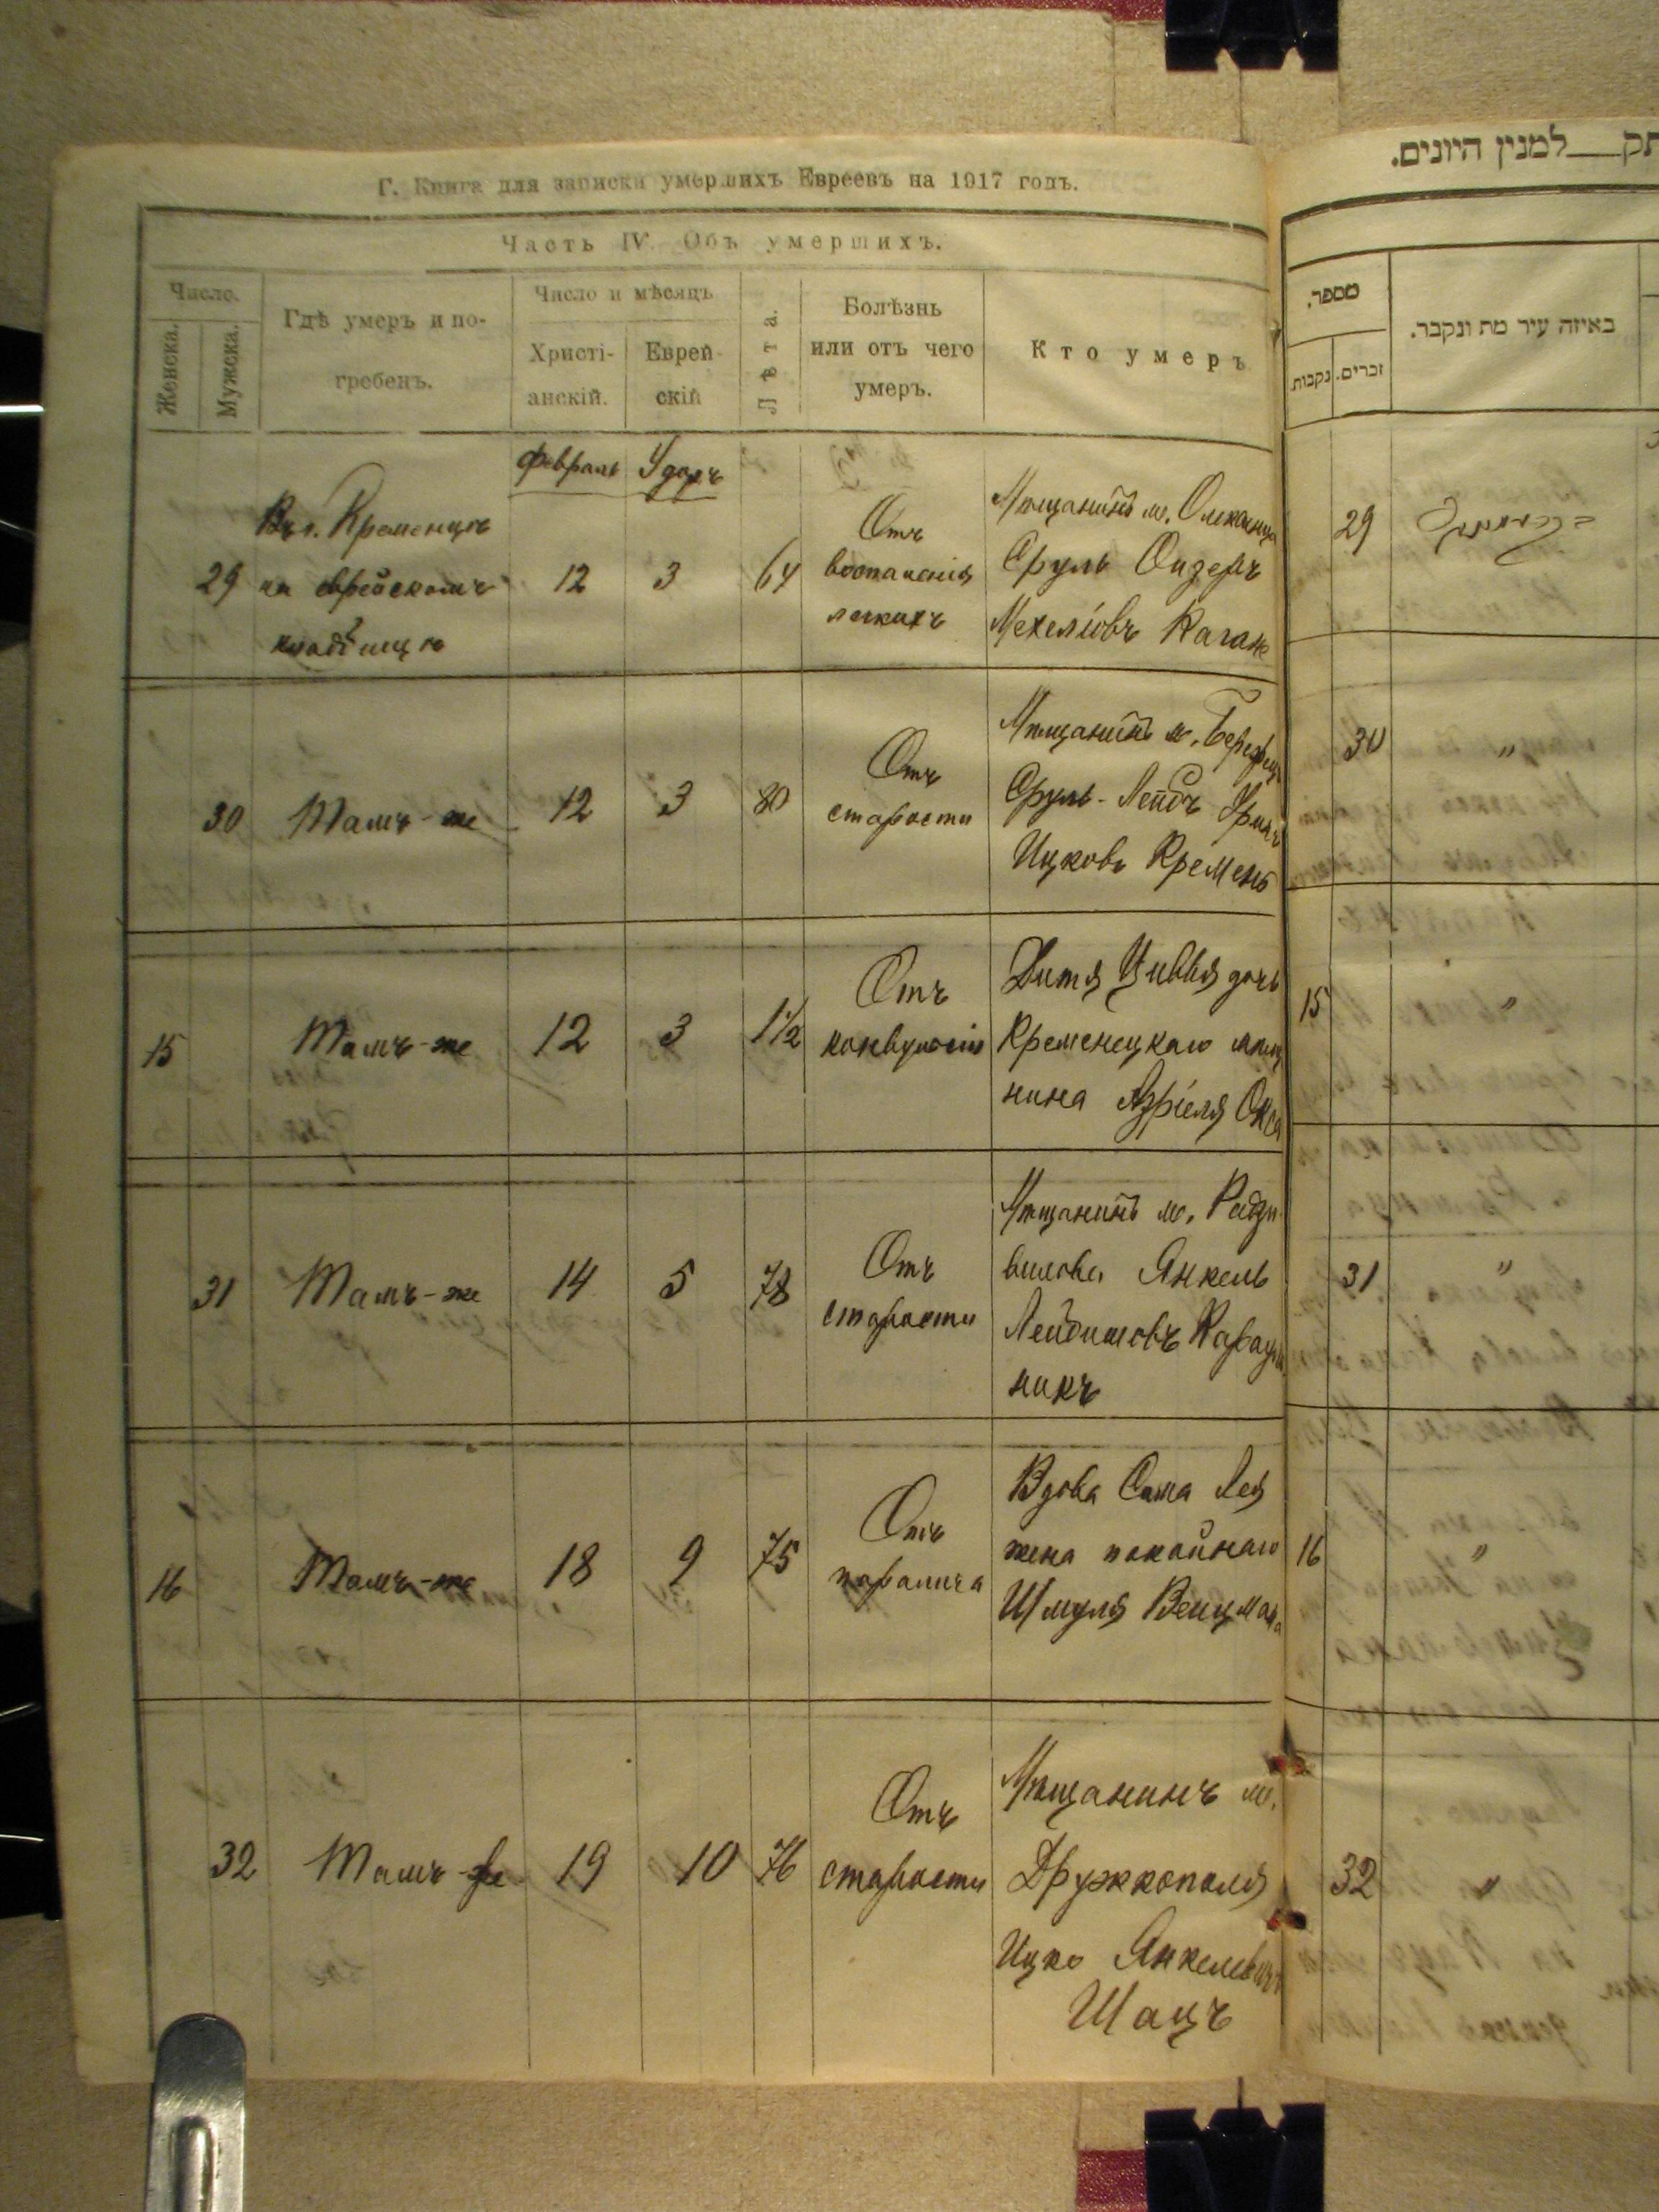 Г. Книга для записки умершихъ Евреевъ на 1917 годъ.
Часть IV. Объ умершихъ.
Число.
Женска.
Мужска.
Гдѣ умеръ и по-
гребенъ.
Число и мѣсяцъ
Христі-
анскій.
Еврей-
скій
Лѣта.
Болѣзнь
или отъ чего
умеръ.
Кто умеръ
Февраль
Въ г. Кременцѣ
29 на еврейскомъ 12 3 64
кладбищѣ
Отъ
воспаленія
легкихъ
Мѣщанинъ м.
Сруль
Мехелiовъ Каган
30 Тамъ-же 12 3 80
Отъ
старости
Мѣщанинъ м.
Сруль-Лейбъ
Ицковъ Кремень
15 Тамъ-же 12 3 1 1/2
Отъ
конвульсiи
Дитя Цивья дочь
Кременецкаго мѣщ
нина Азрiеля Окса
31 Тамъ-же 14 5 78
Отъ
старости
Мѣщанинъ м. Радзи
вилова Янкель
Лейбишовъ
никъ
16 Тамъ-же 18 9 75
Отъ
паралича
Вдова Сима Лея
жена покойнаго
Шмуля Вейцмана
32 Тамъ-же 19 10 76
Отъ
старости
Мѣщанинъ м.
Дружкополя
Ицко
Шацъ
תק למנין היונים.
מספר.
נקבות.
זכרים.
באיזה עיר מת ונקבר.
29
30 "
15 "
31 "
16 "
32 "